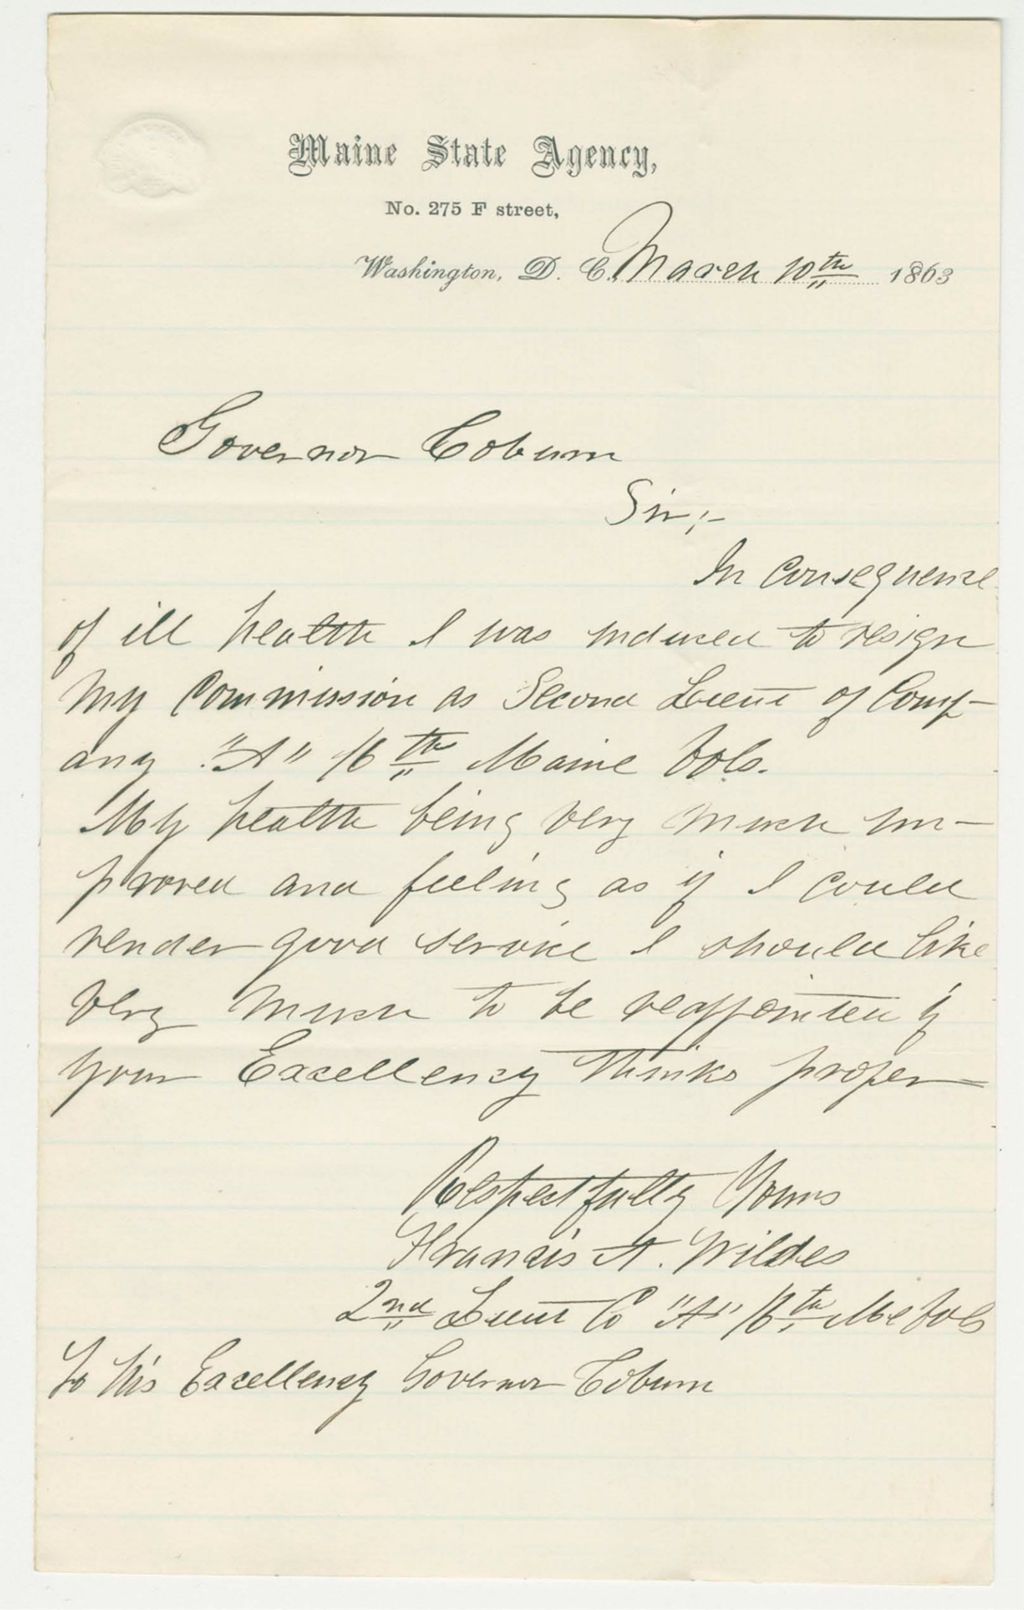 Maine State Agency,
No. 275 F street,
Washington, D. C. March 10th 1863
Governor Coburn
Sir;-
In Consequence
of ill health I was induced to resign
my Commission as Second Lieut of Comp-
any "A" 16th Maine Vols.
My health being very much im-
proved and feeling as if I could
render good service I should like
very much to be reappointed if
your Excellency thinks proper
Respectfully Yours
Francis A. Wildes
2nd Lieut Co "A" 16th Me Vols
To his Excellency Governor Coburn